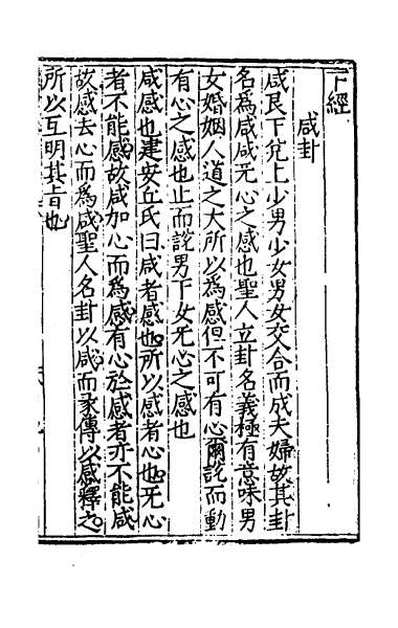 下經
咸卦
咸艮下兌上少男少女男女交合而成夫婦故其卦
名爲咸咸无心之感也聖人立卦名義極有意味男
女婚姻人道之大所以為感但不可有心爾說而動
有心之感也止而說男下女无心之感也
咸感也建安丘氏曰咸者感也所以感者心也无心
者不能感故咸加心而爲感有心於感者亦不能咸
故感去心而爲咸聖人名卦以咸而彖傳以感釋之
所以互明其旨也